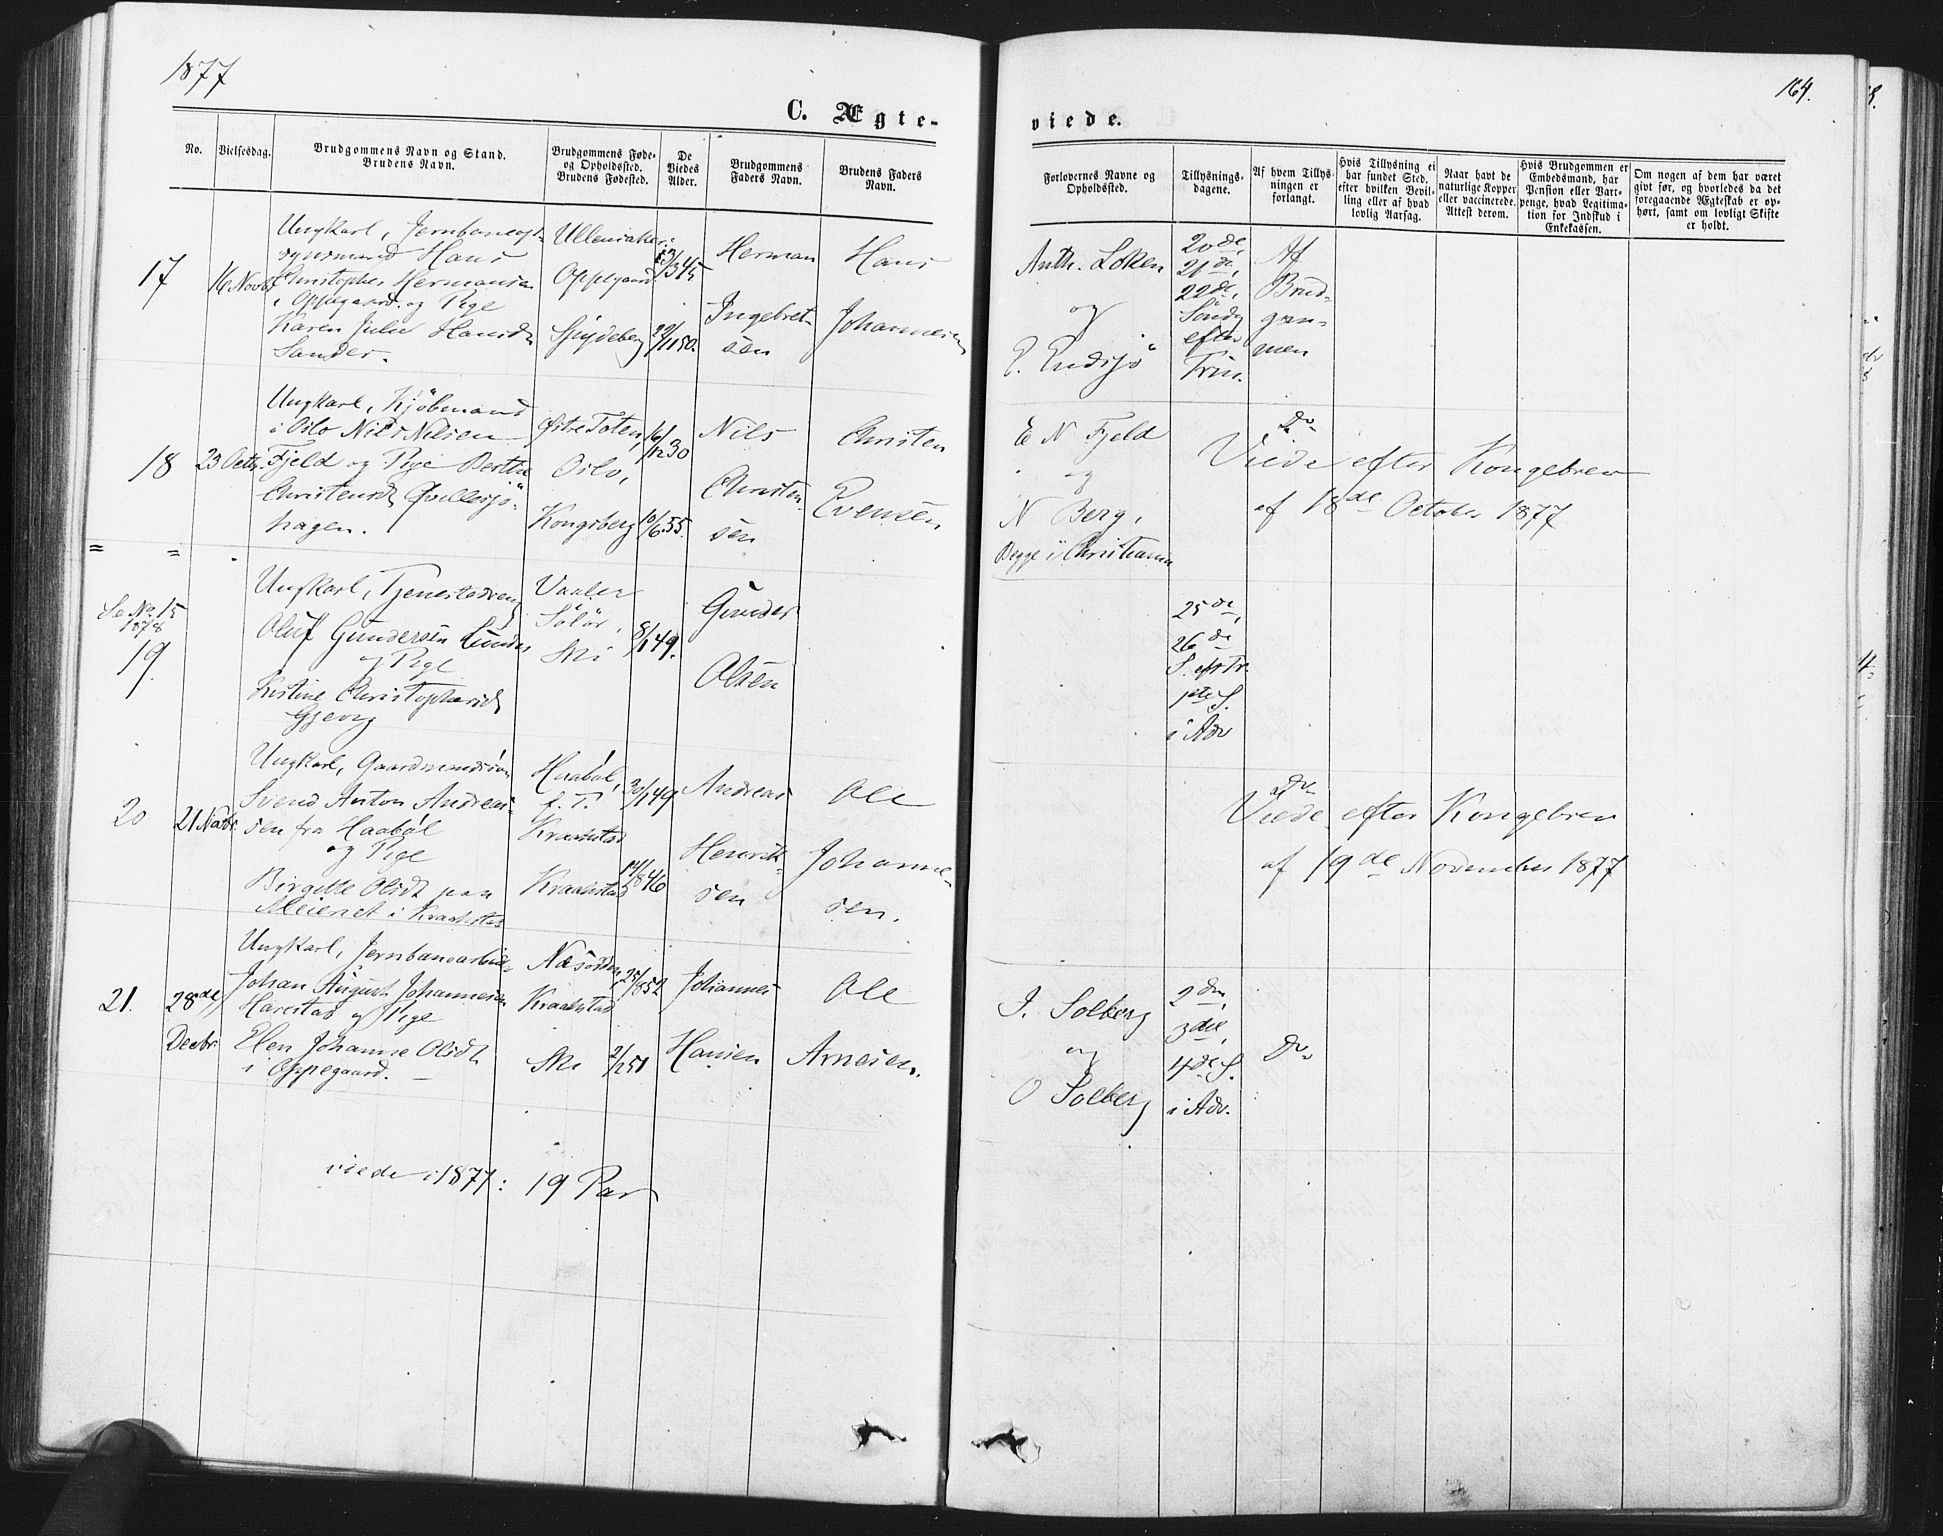 1877
164.
C. Ægte-
viede.
No.
Vielsesdag.
Brudgommens Navn og Stand.
Brudens Navn.
Brudgommens Føde-
og Opholdssted.
Brudens Fødested.
De
Viedes
Alder.
Brudgommens
Faders Navn.
Brudens Faders
Navn.
Forlovernes Navne og
Opholdssted.
Tillysnings-
dagene.
Af hvem Tillys-
ningen er
forlangt.
Hvis Tillysning ei
har fundet Sted,
efter hvilken Bevil-
ling eller af hvad
lovlig Aarsag.
Naar havt de
naturlige Kopper
eller vaccinerede.
Attest derom.
Hvis Brudgommen er
Embedsmand, har
Pension eller Vart-
penge, hvad Legitima-
tion for Indskud i
Enkekassen.
Om nogen af dem har været
givt før, og hvorledes da det
foregaaende Ægteskab er op-
hørt, samt om lovligt Skifte
er holdt.
17
16 Novbr
Ungkarl, Jernbaneop-
synsmand Hans
Christopher Hermansen
i Oppegaard og Pige
Karen Julie Hansdt
Sander.
Ullensaker
Oppegaard
Spydeberg
/3 45
29/11 50.
Herman
Ingebret-
sen
Hans
Johannesen
Anth. Løken
og
E. Endsjö
20de,
21de,
22de,
Sönd
efter
Trin.
Af
Brud-
gom-
men
18
23 Octbr.
Ungkarl, Kjöbmand
i Oslo Nils Nilsen
Fjeld og Pige Berthe
Christensdt Qvillesjö-
hagen.
Østre Toten,
Oslo,
Kongsberg
16/12 30
10/6 55.
Nils
Christen-
sen
Christen
Evensen
E N Fjeld
og
N Berg,
Begge i Christiania
Do
Viede efter Kongebrev
af 18de October 1877
= =
Se No 15
1878
19.
Ungkarl, Tjenestedreng
Oluf Gundersen
og Pige
Kristine Christophersdt
Gjevog
Vaaler
Solör,
Ski
8/1 49.
Gunder
Olsen
25de,
26de
S. eft Tr.
1ste S.
i Adv
20
21 Novbr.
Ungkarl, Gaardmandssön
Svend Anton Andreas-
sen fra Haaböl
og Pige
Birgitte Olsdt paa
Meieriet i Kraakstad
Haaböl,
f. T.
Kraakstad
Kraakstad
30/1 49
14/8 46
Andreas
Henrik-
sen
Ole
Johanne-
sen.
Do
Viede efter Kongebrev
af 19de November 1877
21.
28de
Decbr
Ungkarl, Jernbanearbeid.
Johan August Johannesen
Harestad og Pige
Elen Johanne Olsdt
i Oppegaard.
Næsodden,
Kraakstad
Ski
25/8 52
2/1 51
Johannes
Hansen
Ole
Arnesen.
J. Solberg
og
O Solberg
2den,
3die,
4de S.
i Adv.
Do
viede i 1877: 19 Par